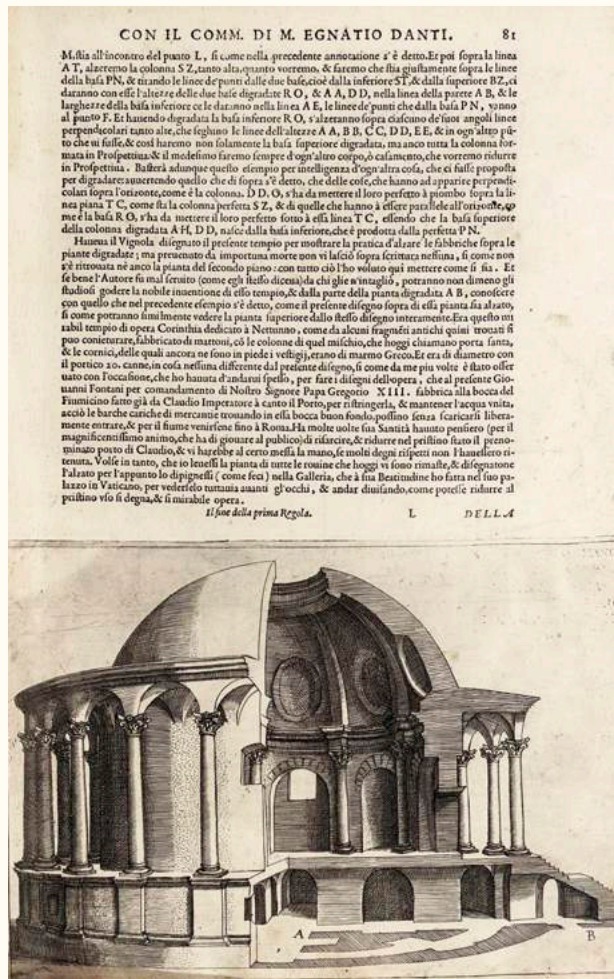 CON IL COMM. DI M. EGNATIO DANTI. 81
M. stia all'incontro del punto L, si come nella precedente annotatione s'è detto. Et poi sopra la linea
A T, alzeremo la colonna S Z, tanto alta, quanto vorremo, & faremo che stia giustamente sopra le linee
della basa P N, & tirando le linee de' punti dalle due base, cioè dalla inferiore S T, & dalla superiore B Z, ci
daranno con esse l'altezze delle due base digradate R O, & A A, D D, nella linea della parete A B, & le
larghezze della basa inferiore ce le daranno nella linea A E, le linee de' punti che dalla basa P N, vanno
al punto F. Et hauendo digradata la basa inferiore R O, s'alzeranno sopra ciascuno de' suoi angoli linee
perpendicolari tanto alte, che seghino le linee dell'altezze A A, B B, C C, D D, E E, & in ogn'altro pũ-
to che ui fusse, & così haremo non solamente la basa superiore digradata, ma anco tutta la colonna for-
mata in Prospettiua: & il medesimo faremo sempre d'ogn'altro corpo, ò casamento, che vorremo ridurre
in Prospettiua. Basterà adunque questo esempio per intelligenza d'ogn'altra cosa, che ci fusse proposta
per digradare: auuertendo quello che di sopra s'è detto, che delle cose, che hanno ad apparire perpendi-
colari sopra l'orizonte, come è la colonna. D D. O, s'ha da mettere il loro perfetto à piombo sopra la li-
nea piana T C, come sta la colonna perfetta S Z, & di quelle che hanno à essere parallele all'orizonte, co
me è la basa R O, s'ha da mettere il loro perfetto sotto à essa linea T C, essendo che la basa superiore
della colonna digradata A H, D D, nasce dalla inferiore, che è prodotta dalla perfetta P N.
Haueua il Vignola disegnato il presente tempio per mostrare la pratica d'alzare le fabbriche sopra le
piante digradate; ma preuenuto da importuna morte non vi lasciò sopra scrittura nessuna, si come non
s'è ritrouata nè anco la pianta del secondo piano: con tutto ciò l'ho voluto qui mettere come si sia. Et
se bene l'Autore fu mal seruito (come egli stesso diceua) da chi glie n'intagliò, potranno non dimeno gli
studiosi godere la nobile inuentione di esso tempio, & dalla parte della pianta digradata A B, conoscere
con quello che nel precedente esempio s'è detto, come il presente disegno sopra di essa pianta sia alzato,
si come potranno similmente vedere la pianta superiore dallo stesso disegno interamente. Era questo mi
rabil tempio di opera Corinthia dedicato à Nettunno, come da alcuni fragmẽti antichi quini trouati si
può conieturare, fabbricato di mattoni, cõ le colonne di quel mischio, che hoggi chiamano porta santa,
& le cornici, delle quali ancora ne sono in piede i vestigij, erano di marmo Greco. Et era di diametro con
il portico 20. canne, in cosa nessuna differente dal presente disegno, si come da me piu volte è stato osser
uato con l'occasione, che ho hauuta d'andarui spesso, per fare i disegni dell'opera, che al presente Gio-
uanni Fontani per comandamento di Nostro Signore Papa Gregorio XIII. fabbrica alla bocca del
Fiumicino fatto già da Claudio Imperatore à canto il Porto, per ristringerla, & mantener l'acqua vnita,
acciò le barche cariche di mercantie trouando in essa bocca buon fondo, possino senza scaricarsi libera-
mente entrare, & per il fiume venirsene fino à Roma. Ha molte uolte sua Santità hauuto pensiero (per il
magnificentissimo animo, che ha di giouare al publico) di risarcire, & ridurre nel pristino stato il preno-
minato porto di Claudio, & vi harebbe al certo messa la mano, se molti degni rispetti non l'hauessero ri-
tenuta. Volse in tanto, che io leuassi la pianta di tutte le rouine che hoggi vi sono rimaste, & disegnatone
l'alzato per l'appunto lo dipignessi (come feci) nella Galleria, che à sua Beatitudine ho fatta nel suo pa-
lazzo in Vaticano, per vederselo tuttauia auanti gl'occhi, & andar diuisando, come potesse ridurre al
pristino vso si degna, & si mirabile opera.
Il fine della prima Regola. L DELLA
A B